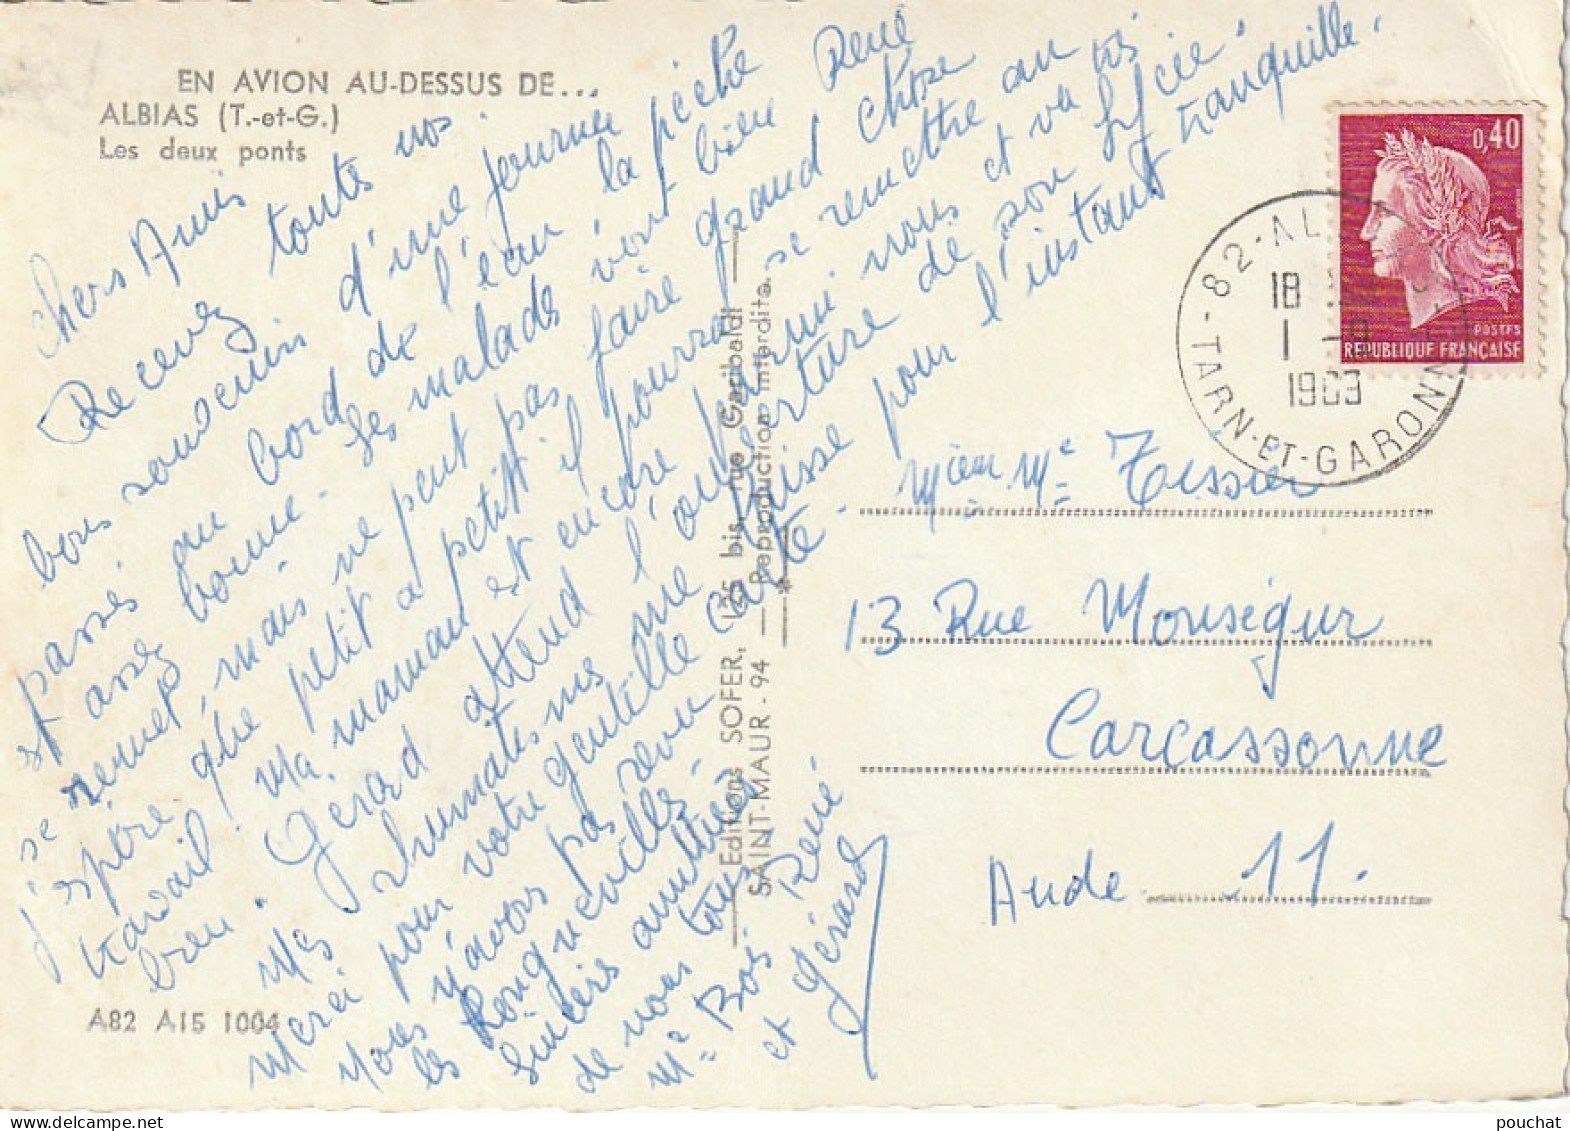 EN AVION AU-DESSUS DE...
ALBIAS (T.-et-G.)
Les deux ponts
Chers Amis
Recevez toutes nos
bons souvenirs d'une journée pêche
passés au bord de l'eau, la pêche
est assez bonne. Les malades vont bien René
se remet, mais ne peut pas faire grand chose
j'espère que petit a petit il pourra se remettre au
travail. Ma maman est encore parmi nous et va très
bien. Gérard attend l'ouverture de son lycée.
Mes rhumatismes me laisse pour l'instant tranquille.
Merci pour votre gentille carte.
Nous n'avons pas revu
les Ronquecuilles.
Sincères amitiés
de nous tous
Me Bois René
et Gérard
Editions SOFER, 125 bis, rue Garibaldi
SAINT-MAUR - 94 — Reproduction interdite.
0,40
POSTES
REPUBLIQUE FRANÇAISE
82 - AL
18
1 -
1963
TARN-ET-GARONNE
Me Tissier
13 Rue Monségur
Carcassonne
Aude 11.
A82 A15 1004
pouchat